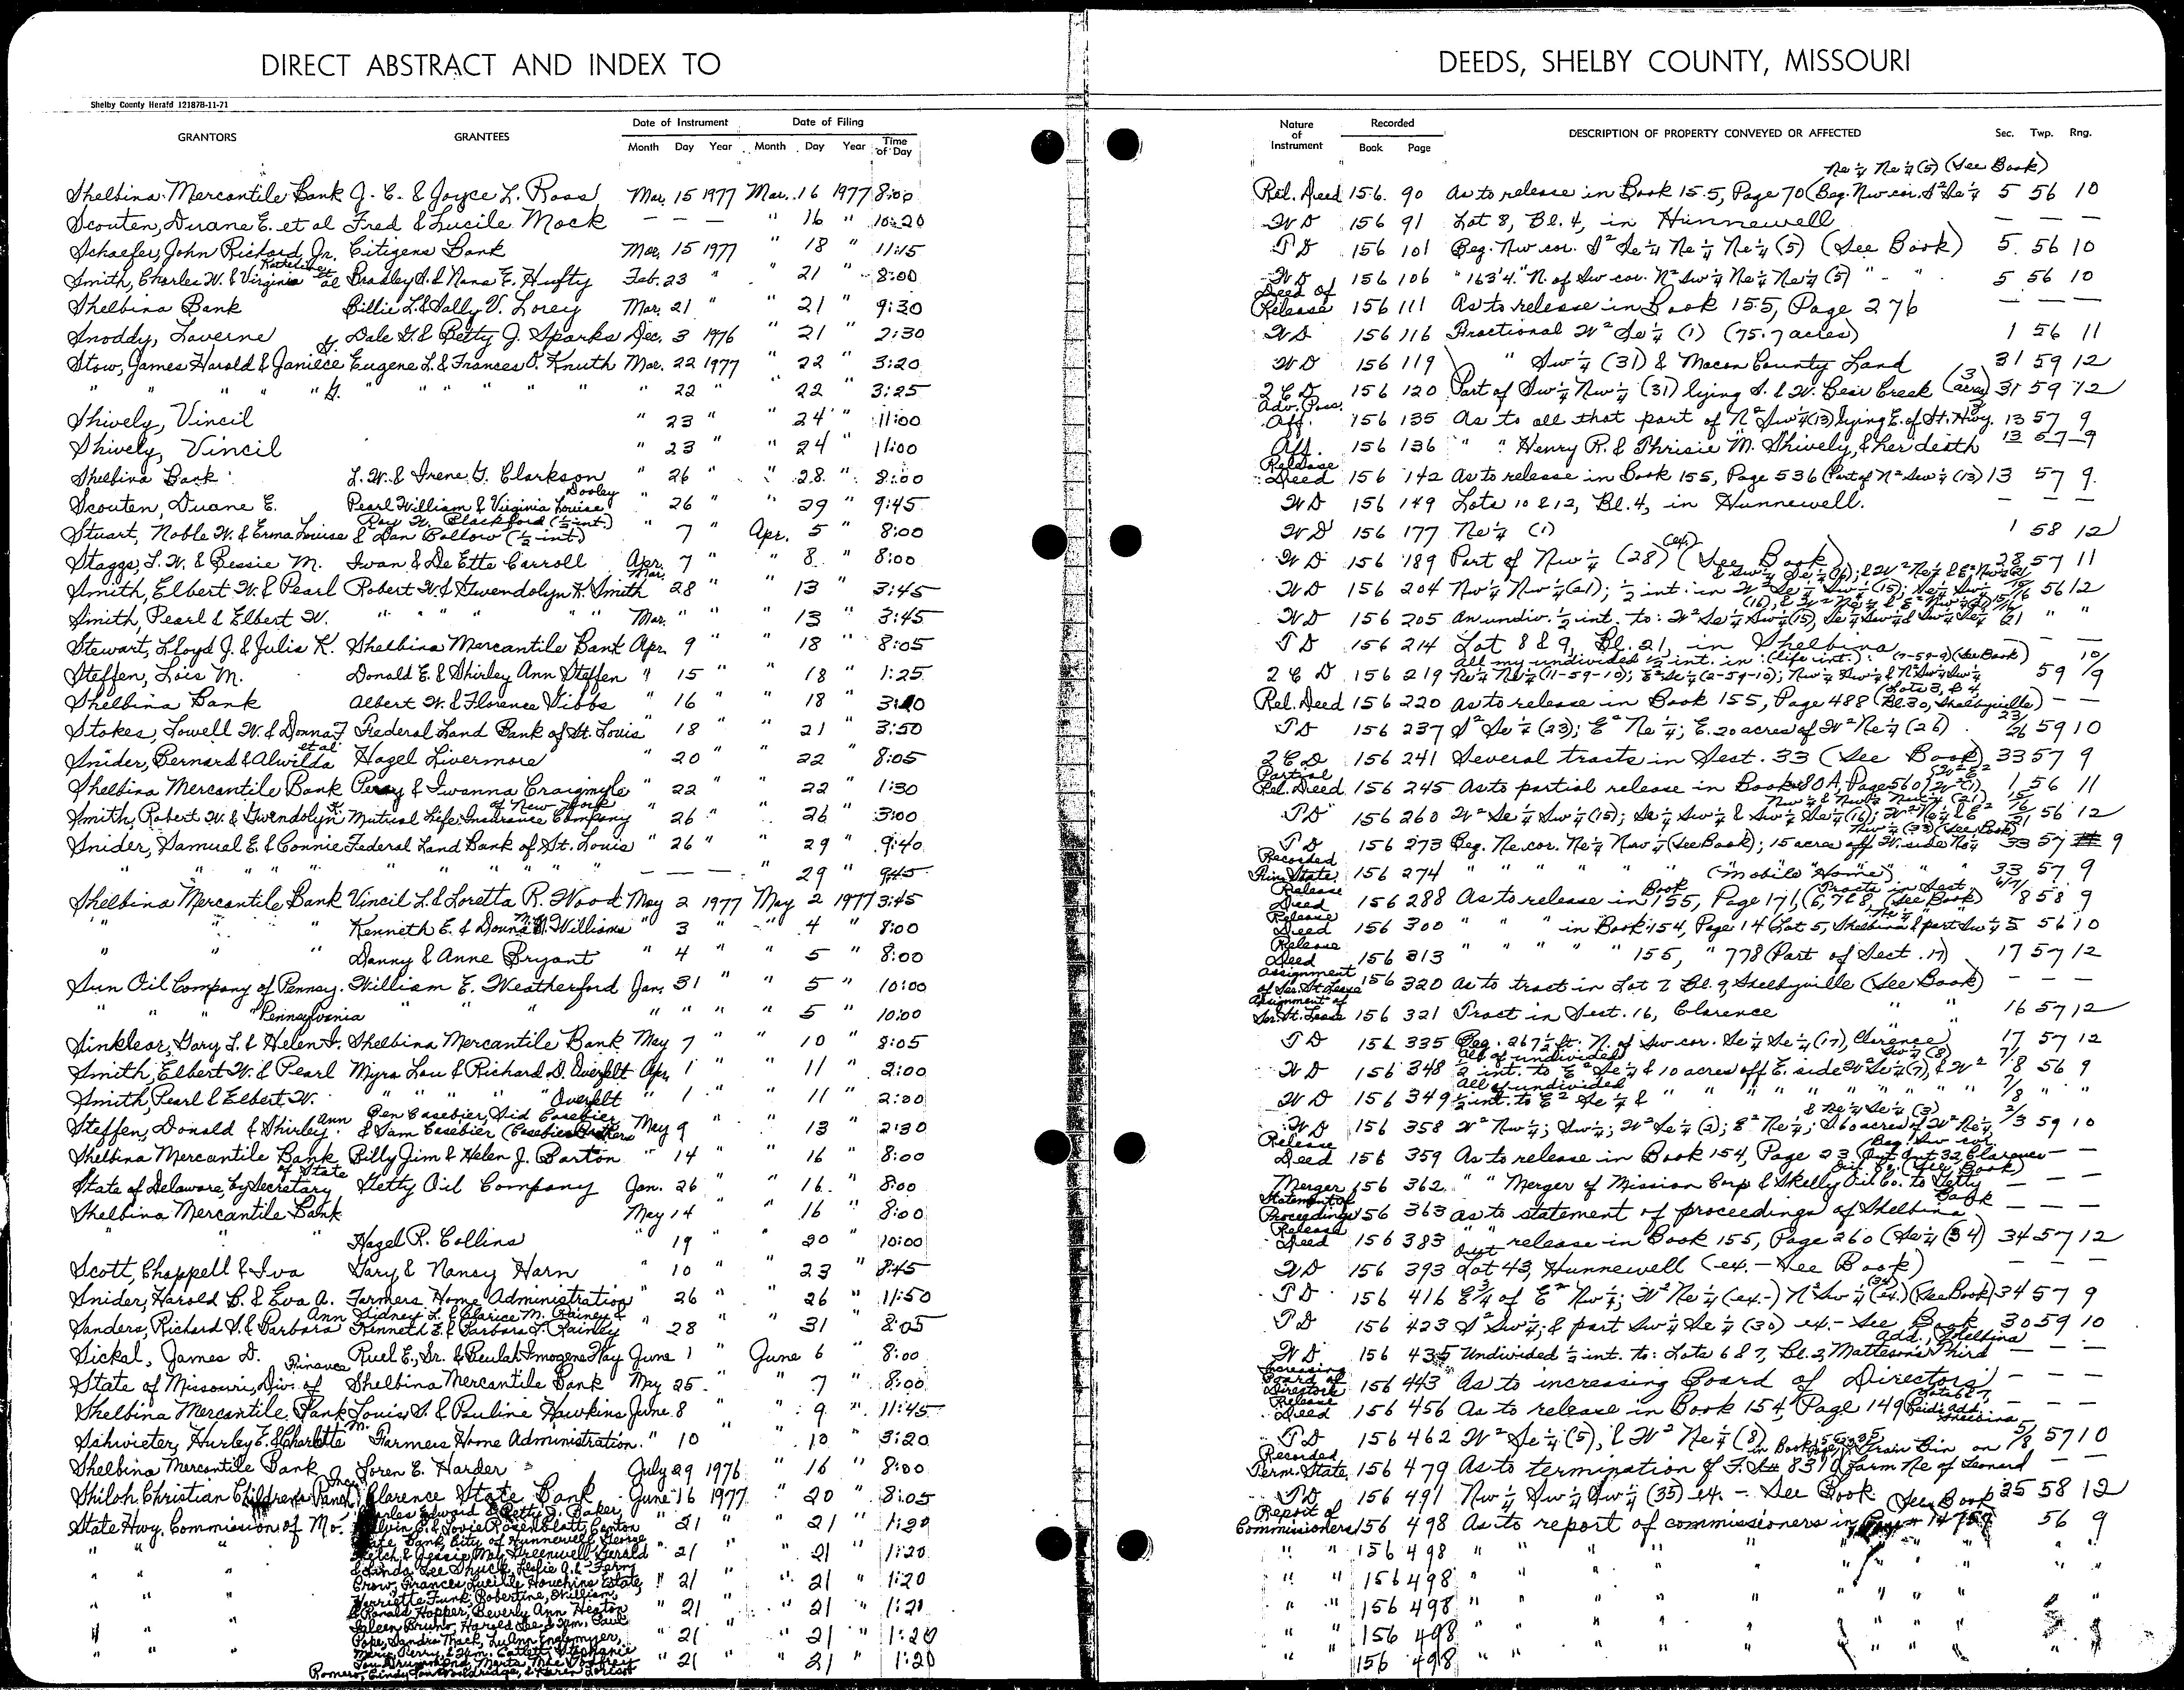 DIRECT ABSTRACT AND INDEX TO DEEDS, SHELBY COUNTY, MISSOURI
Shelby County Herald 12187B-11-71
GRANTORS GRANTEES Date of Instrument Month Day Year Date of Filing Month Day Year Time of Day Nature of Instrument Recorded Book Page DESCRIPTION OF PROPERTY CONVEYED OR AFFECTED Sec. Twp. Rng.
Ne ¼ Ne ¼ (5) (See Book)
Shelbina Mercantile Bank J. C. & Joyce L. Ross Mar. 15 1977 Mar. 16 1977 8:00 Rel. Deed 156 90 As to release in Book 155, Page 70 (Beg. Nw cor. S² Se ¼ 5 56 10
Scouten, Duane E. et al Fred & Lucile Mock — — — " 16 " 10:20 WD 156 91 Lot 8, Bl. 4, in Hunnewell — — —
Schaefer, John Richard Jr. Citizens Bank Mar. 15 1977 " 18 " 11:15 TD 156 101 Beg. Nw cor. S² Se ¼ Ne ¼ Ne ¼ (5) (See Book) 5 56 10
Smith, Charles W. & Virginia et al Bradley S. & Nana E. Hufty Feb. 23 " " 21 " 8:00 WD 156 106 " 163'4" N. of Sw cor. N² Sw ¼ Ne ¼ Ne ¼ (5) " - " 5 56 10
Shelbina Bank Billie L. & Sally V. Lorey Mar. 21 " " 21 " 9:30 Deed of Release 156 111 As to release in Book 155, Page 276 — — —
Snoddy, Laverne Dale G. & Betty J. Sparks Dec. 3 1976 " 21 " 2:30 WD 156 116 Fractional W² Se ¼ (1) (75.7 acres) 1 56 11
Stow, James Harold & Janiece G. Eugene L. & Frances D. Knuth Mar. 22 1977 " 22 " 3:20 WD 156 119 " Sw ¼ (31) & Macon County Land 31 59 12
" " " " " G. " " " " " " 22 " 22 " 3:25 2 C D 156 120 Part of Sw ¼ Nw ¼ (31) lying S. & W. Bear Creek (3 acres) 31 59 12
Shively, Vincil " 23 " " 24 " 11:00 Adv. Poss. Aff. 156 135 As to all that part of N² Sw ¼ (13) lying E. of St. Hwy. 13 57 9
Shively, Vincil " 23 " " 24 " 11:00 Aff. 156 136 " " Henry R. & Thrisie M. Shively, & her death 13 57 9
Shelbina Bank L. W. & Irene G. Clarkson " 26 " " 28 " 8:00 Release Deed 156 142 As to release in Book 155, Page 536 (Part of N² Sw ¼ (13) 13 57 9
Scouten, Duane E. Pearl William & Virginia Louise Dooley " 26 " 29 " 9:45 WD 156 149 Lots 10 & 12, Bl. 4, in Hunnewell. — — —
Stuart, Noble W. & Erma Louise Roy W. Blackford (½ int.) & Dan Bollow (½ int) " 7 Apr. 5 " 8:00 WD 156 177 Ne ¼ (1) 1 58 12
Staggs, T. W. & Bessie M. Iwan & De Etta Carroll Apr. 7 " " 8 " 8:00 WD 156 189 Part of Nw ¼ (28) (ex.) (See Book) 28 57 11
Smith, Elbert W. & Pearl Robert W. & Gwendolyn K. Smith Mar. 28 " " 13 " 3:45 WD 156 204 Nw ¼ Nw ¼ (21); ½ int. in W² Se ¼ Sw ¼ (15); 56 12
Smith, Pearl & Elbert W. " " " " " Mar. " " " 13 " 3:45 WD 156 205 An undiv. ½ int. to: W² Se ¼ Sw ¼ (15), Se ¼ Sw ¼ & Sw ¼ Se ¼ " "
Stewart, Lloyd J. & Julia K. Shelbina Mercantile Bank Apr. 9 " " 18 " 8:05 TD 156 214 Lot 8 & 9, Bl. 21, in Shelbina — — —
Steffen, Lois M. Donald E. & Shirley Ann Steffen " 15 " " 18 " 1:25 2 C D 156 219 All my undivided ½ int. in: (life int.): Ne ¼ Ne ¼ (11-59-10); E² Se ¼ (2-59-10); (7-59-9) (See Book) 59 10/9
Shelbina Bank Albert W. & Florence Gibbs " 16 " 18 " 3:10 Rel. Deed 156 220 As to release in Book 155, Page 488 (Lots 3, & 4, Bl. 30, Shelbyville) — —
Stokes, Lowell W. & Donna F. Federal Land Bank of St. Louis " 18 " " 21 " 3:50 TD 156 237 S² Se ¼ (23); E² Ne ¼; E. 20 acres of W² Ne ¼ (26) 23/26 59 10
Snider, Bernard & Alwilda et al Hazel Livermore " 20 " 22 " 8:05 2 C D 156 241 Several tracts in Sect. 33 (See Book) 33 57 9
Shelbina Mercantile Bank Perry & Iwanna Craigmyle " 22 " 22 " 1:30 Partial Rel. Deed 156 245 As to partial release in Book 80A, Page 560 1 56 11
Smith, Robert W. & Gwendolyn K. Mutual Life Insurance Company of New York " 26 " 26 " 3:00 TD 156 260 W² Se ¼ Sw ¼ (15); Se ¼ Sw ¼ & Sw ¼ Se ¼ (16); 56 12
Snider, Samuel E. & Connie Federal Land Bank of St. Louis " 26 " " 29 " 9:40 TD 156 273 Beg. Ne cor. Ne ¼ Nw ¼ (See Book); 15 acres off W. side 33 57 9
" " " " " " " — — — " 29 " 9:45 Recorded Fin. State. 156 274 " " " " ("Mobile Home") " 33 57 9
Shelbina Mercantile Bank Vincil L. & Loretta R. Wood May 2 1977 May 2 1977 3:45 Release Deed 156 288 As to release in Book 155, Page 171 (Tracts in Sect. 6, 7 & 8, (See Book) 58 9
" " " Kenneth E. & Donna M. Williams " 3 " " 4 " 8:00 Release Deed 156 300 " " " in Book 154, Page 14 Lot 5, Shelbina & part Sw ¼ 5 56 10
" " " Danny & Anne Bryant " 4 " 5 " 8:00 Release Deed 156 313 " " " " 155, " 778 (Part of Sect. 17) 17 57 12
Sun Oil Company of Pennsy. William E. Weatherford Jan. 31 " " 5 " 10:00 Assignment of Ser. St. Lease 156 320 As to tract in Lot 7 Bl. 9, Shelbyville (See Book) — — —
" " " " Pennsylvania " " " " " " 5 " 10:00 Assignment of Ser. St. Lease 156 321 Tract in Sect. 16, Clarence " " 16 57 12
Sinklear, Gary L. & Helen I. Shelbina Mercantile Bank May 7 " " 10 " 8:05 TD 156 335 Beg. 267½ ft. N. of Sw cor. Se ¼ Se ¼ (17), Clarence 17 57 12
Smith, Elbert W. & Pearl Myra Lou & Richard D. Overfelt Apr. 1 " " 11 " 2:00 WD 156 348 All of undivided ½ int. to E² Se ¼ & 10 acres off E. side W² Se ¼ (7), & W² Sw ¼ (8) 7/8 56 9
Smith, Pearl & Elbert W. " " " " Overfelt " 1 " " 11 " 2:00 WD 156 349 All of undivided ½ int. to E² Se ¼ & " " " " " " 7/8 " "
Steffen, Donald & Shirley Ann Ben Casebier, Sid Casebier & Sam Casebier (Casebier Brothers May 9 " " 13 " 2:30 WD 156 358 W² Nw ¼; Sw ¼; W² Se ¼ (2); E² Ne ¼; S 60 acres of W² Ne ¼ & Ne ¼ Se ¼ (3) 2/3 59 10
Shelbina Mercantile Bank Billy Jim & Helen J. Barton " 14 " " 16 " 8:00 Release Deed 156 359 As to release in Book 154, Page 23 — —
State of Delaware, by Secretary of State Getty Oil Company Jan. 26 " " 16 " 8:00 Merger 156 362 " " Merger of Mission Corp & Skelly Oil Co. to Getty Oil Co. (See Book) — — —
Shelbina Mercantile Bank May 14 " 16 " 8:00 Statement of Proceedings 156 363 as to statement of proceedings of Shelbina Bank — — —
" " " Hazel R. Collins 19 " " 20 " 10:00 Release Deed 156 383 " " release in Book 155, Page 260 (Se ¼ (34) 34 57 12
Scott, Chappell & Iva Gary & Nancy Harn " 10 " " 23 " 8:45 WD 156 393 Out Lot 43, Hunnewell (ex. - See Book) — —
Snider, Harold B. & Eva A. Farmers Home Administration " 26 " " 26 " 11:50 TD 156 416 E ¾ of E² Nw ¼; W² Ne ¼ (ex.-) N² Sw ¼ (34) (ex.) (See Book) 34 57 9
Sanders, Richard S. & Barbara Ann Sidney L. & Clarice M. Rainey & Kenneth E. & Barbara L. Rainey " 28 " 31 " 8:05 TD 156 423 S² Sw ¼; & part Sw ¼ Se ¼ (30) ex. - See Book 30 59 10
Sickal, James D. Ruel E., Sr. & Beulah Imogene Hay June 1 " June 6 " 8:00 WD 156 435 Undivided ½ int. to: Lots 6 & 7, Bl. 2, Matteson's Third Add., Shelbina — — —
State of Missouri, Div. of Finance Shelbina Mercantile Bank May 25 " 7 " 8:00 Increasing Board of Directors 156 443 As to increasing Board of Directors — — —
Shelbina Mercantile Bank Louis S. & Pauline Hawkins June 8 " " 9 " 11:45 Release Deed 156 456 As to release in Book 154, Page 149 — — —
Schwieter, Hurley E. & Charlotte M. Farmers Home Administration " 10 " " 10 " 3:20 TD 156 462 W² Se ¼ (5), & W² Ne ¼ (8) 5/8 57 10
Shelbina Mercantile Bank Loren E. Harder July 29 1976 " 16 " 8:00 Recorded Term. State. 156 479 As to termination of F.S.# 8310 Grain Bin on Farm Ne of Leonard — —
Shiloh Christian Children's Ranch, Inc. Clarence State Bank June 16 1977 " 20 " 8:05 TD 156 491 Nw ¼ Sw ¼ Sw ¼ (35) ex. - See Book 35 58 12
State Hwy. Commission of Mo. Charles Edward & Betty J. Baker, " 21 " " 21 " 1:20 Report of Commissioners 156 498 As to report of commissioners in (See Book) 56 9
" " " State Bank, City of Hunnewell, " 21 " " 21 " 1:20 " " 156 498 " " " " " "
" " " Crow, Frances Lucille Houchins Estate, " 21 " " 21 " 1:20 " " 156 498 " " " " " "
" " " & Ronald Hopper, Beverly Ann Heaton " 21 " " 21 " 1:20 " " 156 498 " " " " " "
" " " Pope, Sandra Thack, " 21 " " 21 " 1:20 " " 156 498 " " " " " "
" " " Romero, " 21 " 21 " 1:20 " " 156 498 " " " " " "